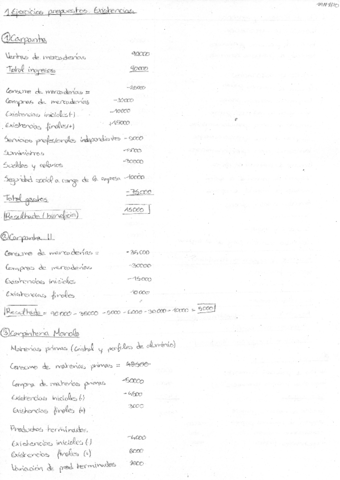 1. Ejercicios propuestos. Existencias.
① Carpanta
Ventas de mercaderías 90000
Total ingresos 90000
Consumo de mercaderías =
Compras de mercaderías
Existencias iniciales (-)
Existencias finales (+)
Servicios profesionales independientes -5000
Suministros
Sueldos y salarios
Seguridad social a cargo de la empresa -10000
Total gastos -75000
Resultado (beneficio) 15000
② Carpanta II
Consumo de mercaderías = -35000
Compras de mercaderías -30000
Existencias iniciales -15000
Existencias finales 10000
Resultado = 90000 - 35000 - 5000 - - 30000 - 10000 = 5000
③ Carpintería Manolo
Materias primas (cristal y perfiles de aluminio)
Consumo de materias primas =
Compra de materias primas -50000
Existencias iniciales (-) -4500
Existencias finales (+) 3000
Productos terminados
Existencias iniciales (-)
Existencias finales (+) 6000
Variación de prod. terminados 2000